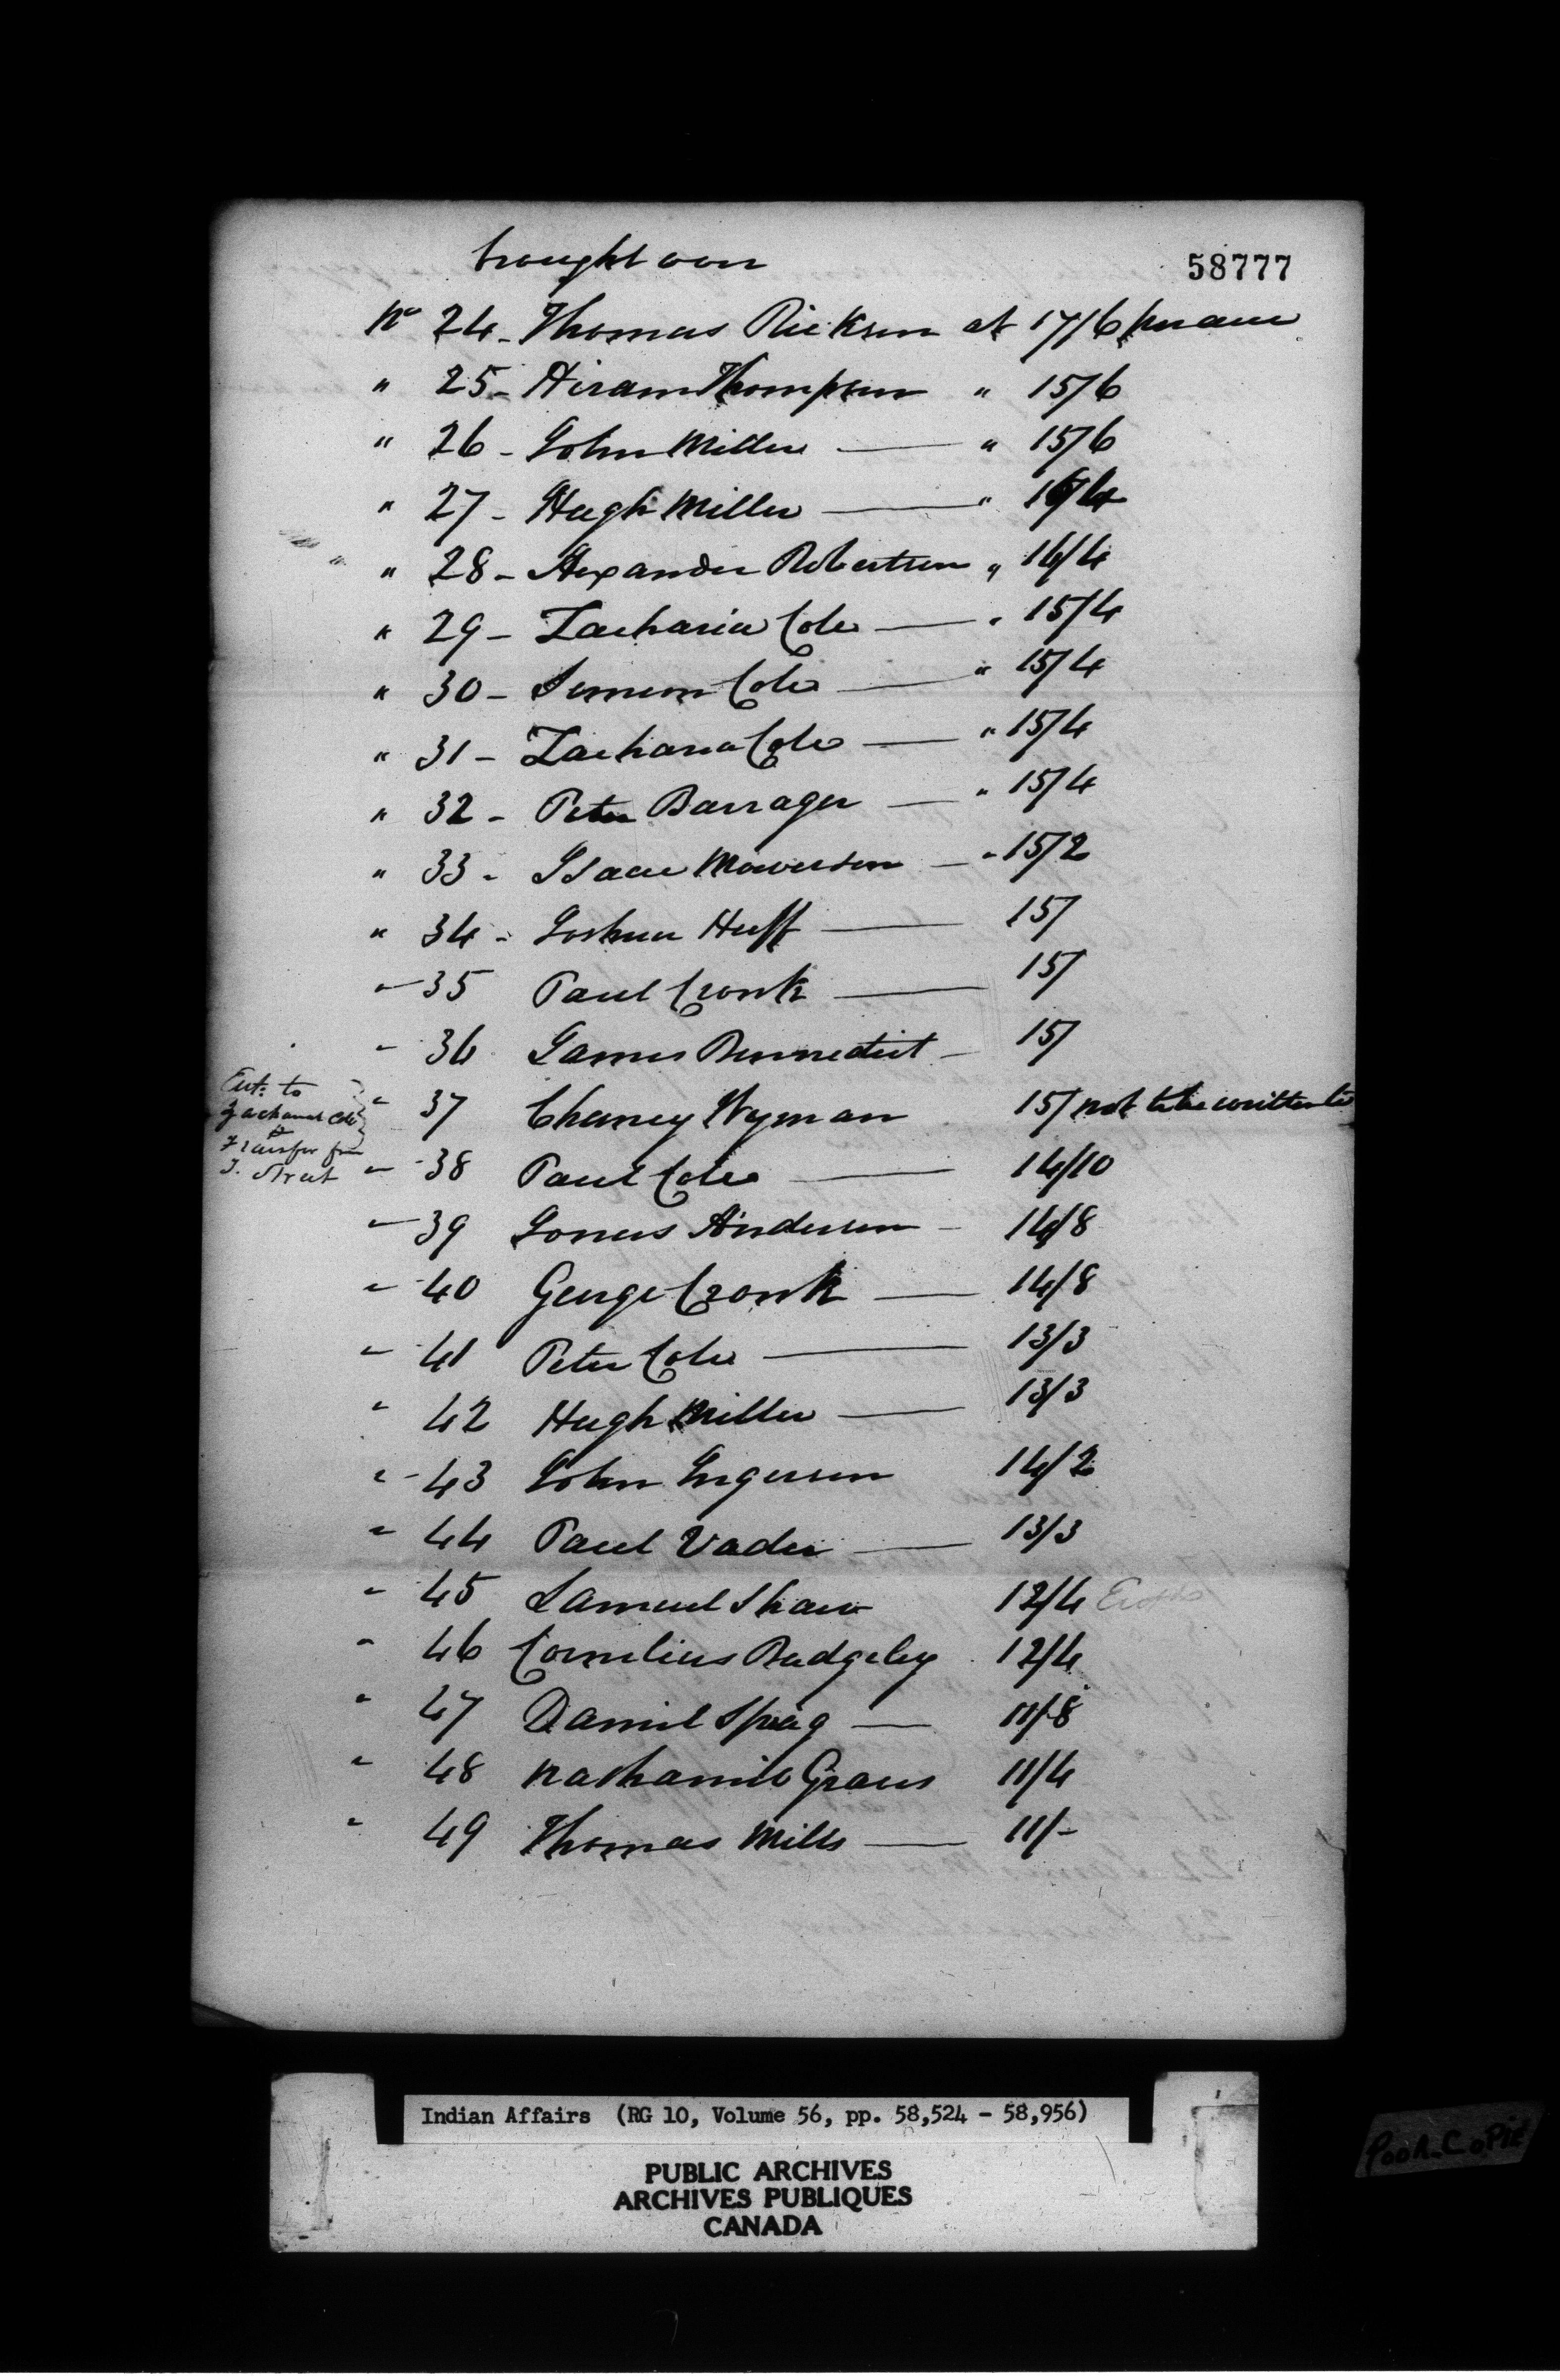 brought over
58777
No 24 - Thomas Rickson at 17/6 per acre
" 25 - Hiram Thompson " 15/6
" 26 - John Miller — " 15/6
" 27 - Hugh Miller — " 16/4
" 28 - Alexander Robertson " 16/4
" 29 - Zacharia Cole — " 15/4
" 30 - Simeon Cole — " 15/4
" 31 - Zacharia Cole — " 15/4
" 32 - Peter Barrager — " 15/4
" 33 - Isaac Mowerson — " 15/2
" 34 - Joshua Huff — 15/
" 35 Paul Cronk — 15/
" 36 James Bennedict - 15/
" 37 Chancy Wyman 15/ not to be written to
Ent: to
Zachariah Cole
Transfer from
J. Strect
" 38 Paul Cole — 14/10
" 39 Jonas Anderson - 14/8
" 40 George Cronk — 14/8
" 41 Peter Cole — 13/3
" 42 Hugh Miller — 13/3
" 43 John Ingerson 14/2
" 44 Paul Vader — 13/3
" 45 Samuel Shaw 12/4
" 46 Cornelius Badgeley 12/4
" 47 Daniel Sprag — 11/8
" 48 Nathaniel Graves 11/4
" 49 Thomas Mills — 11/-
Indian Affairs (RG 10, Volume 56, pp. 58,524 - 58,956)
PUBLIC ARCHIVES
ARCHIVES PUBLIQUES
CANADA
POOR COPIE